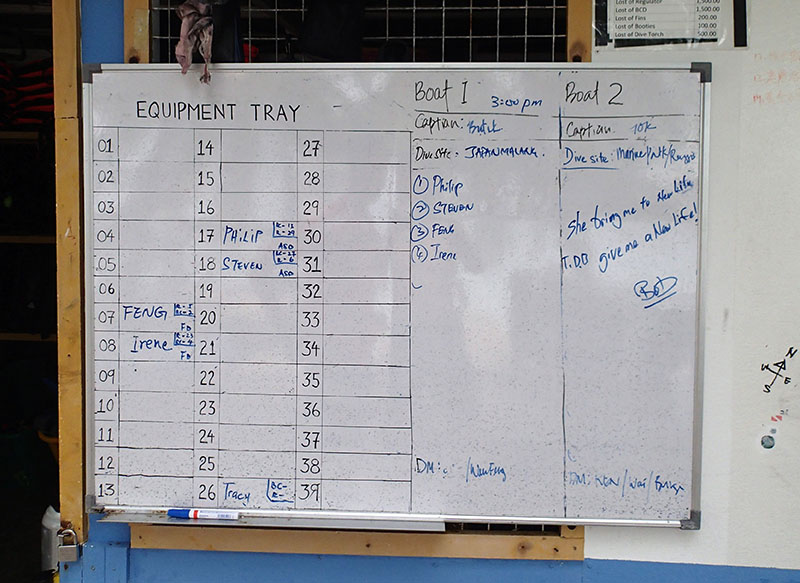 Lost of Regulator 1,500.00
Lost of BCD 1,500.00
Lost of Fins 200.00
Lost of Booties 100.00
Lost of Dive Torch 500.00
EQUIPMENT TRAY
01 14 27
02 15 28
03 16 29
04 17 PHILIP ASD 30
05 18 STEVEN ASD 31
06 19 32
07 FENG FD 20 33
08 Irene FD 21 34
09 22 35
10 23 36
11 24 37
12 25 38
13 26 Tracy BC- R- 39
Boat 1 3:00 pm
Captian:
Dive site - JAPANMALANG.
① Philip
② STEVEN
③ FENG
④ Irene
DM: /WenFeng
Boat 2
Captian. 10K
Dive site:
She bring me to New Life
T.D.D give me a New Life!
BOD
DM: /Wai/
N
W E
S